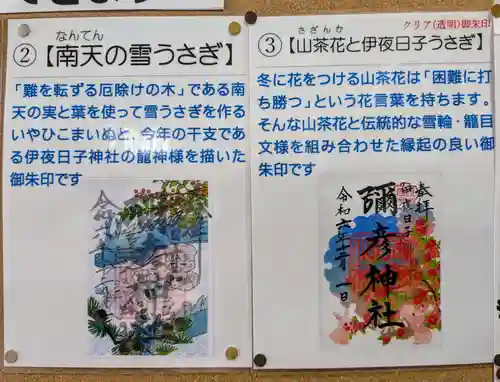 ②
なんてん
【南天の雪うさぎ】
「難を転ずる厄除けの木」である南
天の実と葉を使って雪うさぎを作る
いやひこまいぬと、今年の干支であ
る伊夜日子神社の龍神様を描いた
御朱印です
クリア(透明)御朱印
③
さざんか
【山茶花と伊夜日子うさぎ】
冬に花をつける山茶花は「困難に打
ち勝つ」という花言葉を持ちます。
そんな山茶花と伝統的な雪輪・籠目
文様を組み合わせた縁起の良い御
朱印です
奉拝
彌彦神社
令和六年十二月一日